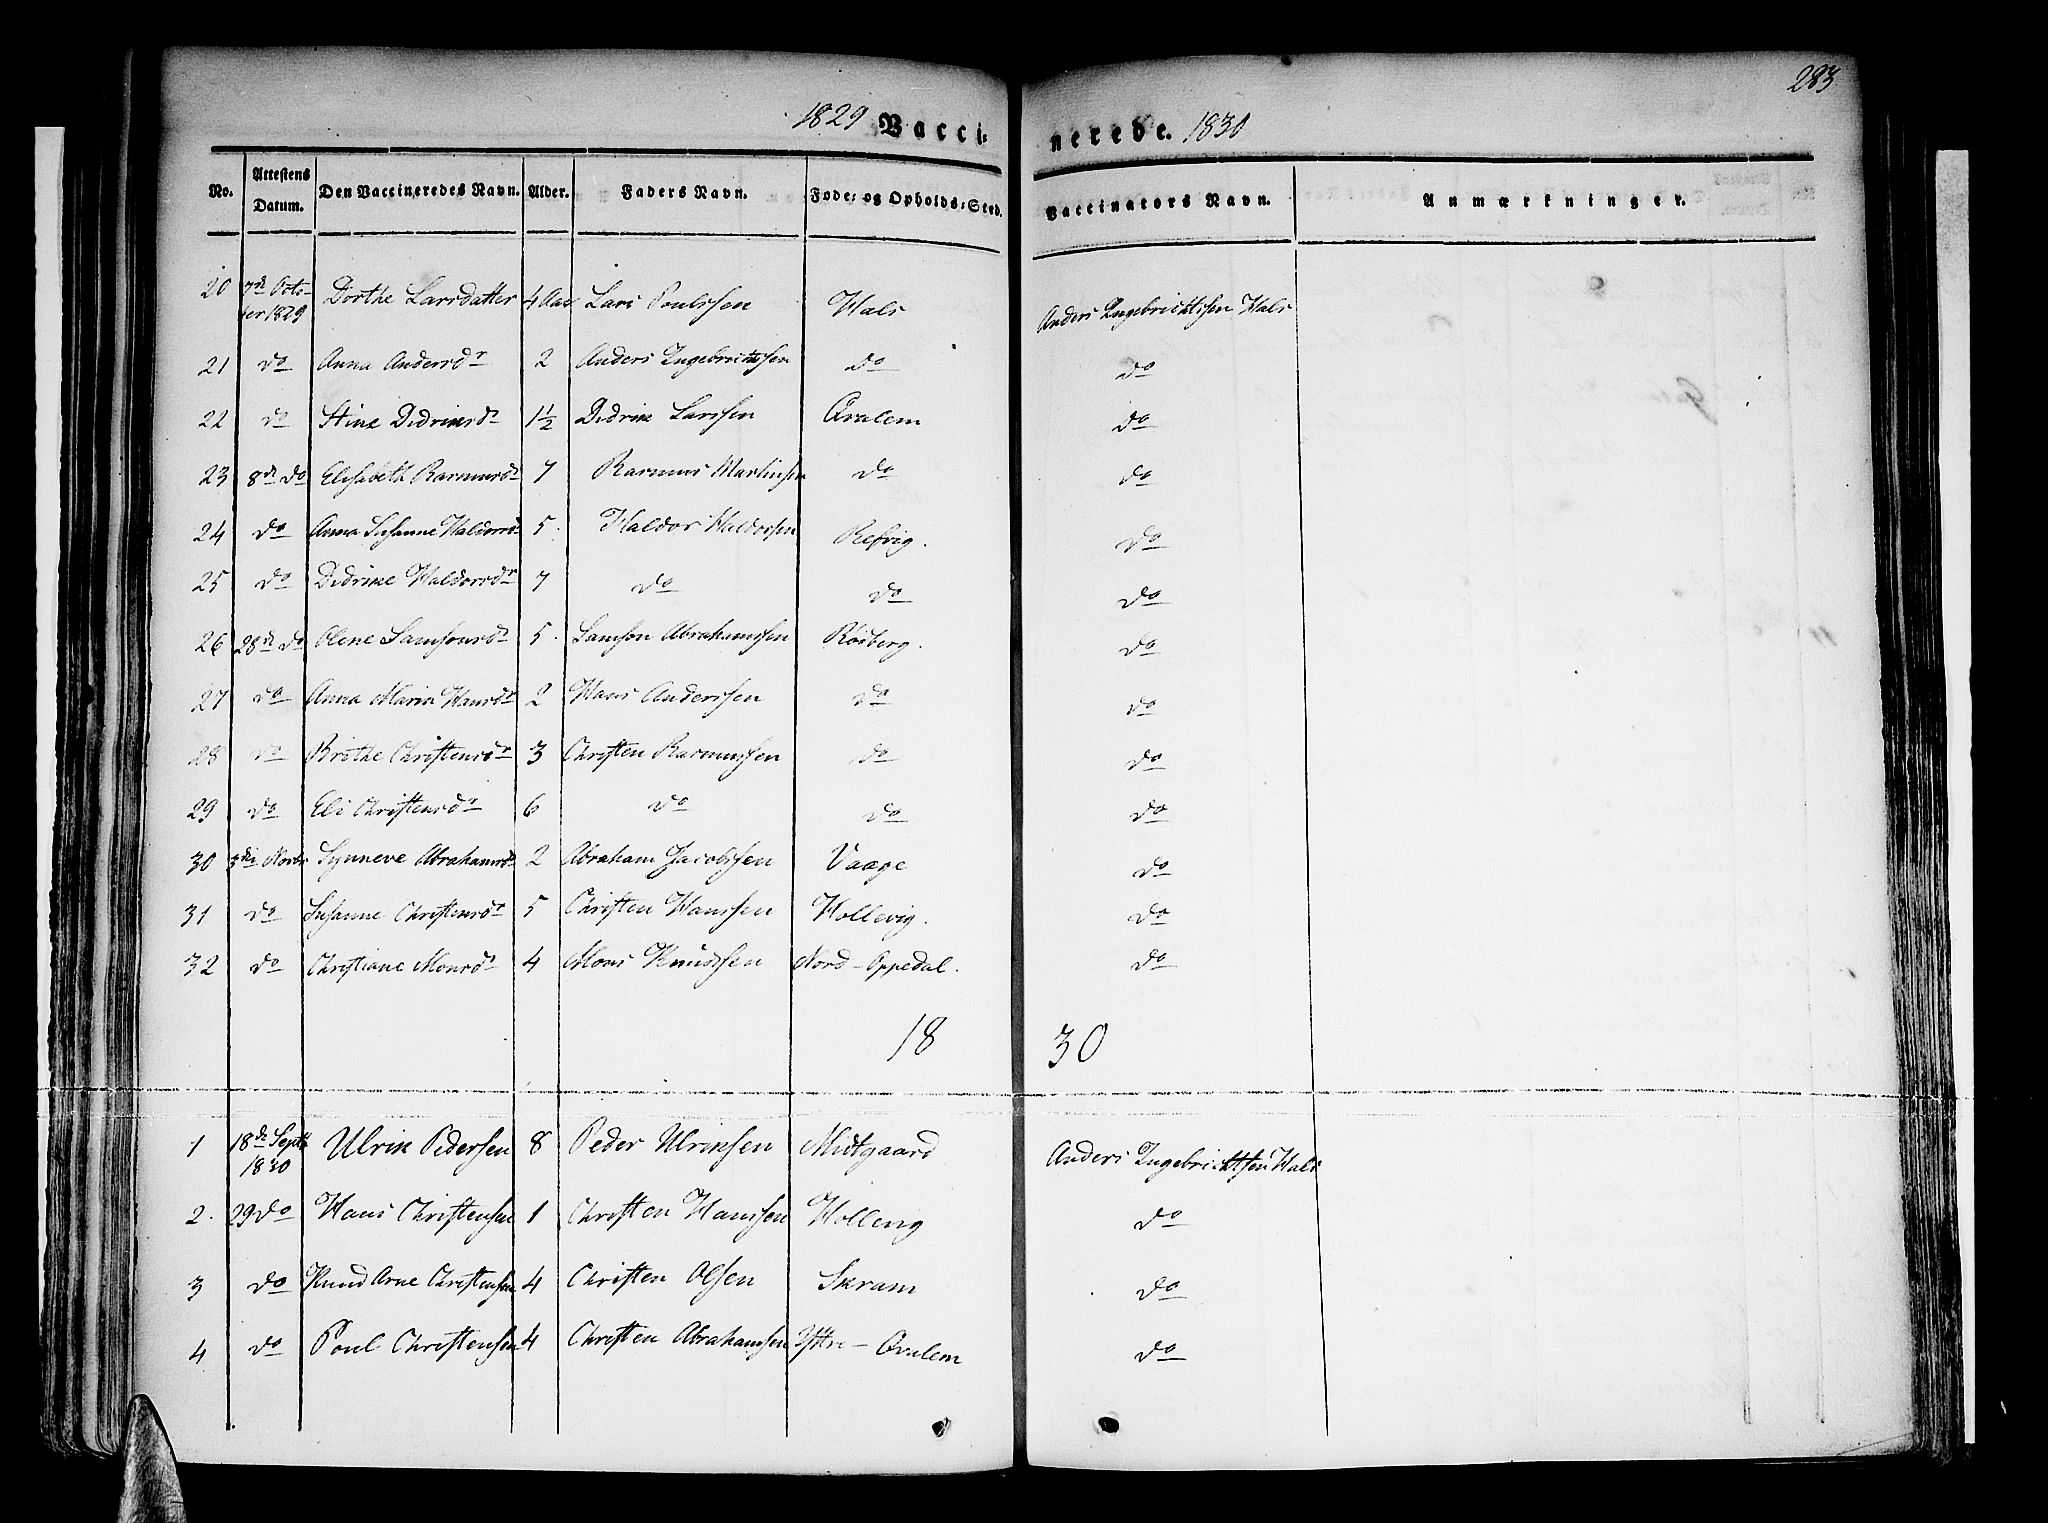 283
1829 Vacci- nerede. 1830
No. Attestens Datum. Den Vaccineredes Navn. Alder. Faders Navn. Føde- og Opholds-Sted. Vaccinators Navn. Anmærkninger.
20 7de Octo-ber 1829 Dorthe Larsdatter 4 Aar Lars Poulssen Hals Anders Ingebrichtssen Hals
21 do Anna Andersdr 2 Anders Ingebrichtssen do do
22 do Stine Didriksdr 1½ Didrik Larssen Qvalem do
23 8de do Elisabeth Rasmusdr 7 Rasmus Martinsen do do
24 do Anna Susanne Haldorsdr 5. Haldor Haldorsen Refvig. do
25 do Didrike Haldorsdr 7 do do do
26 28de do Olene Samsonsdr 5. Samson Abrahamssen Röiberg. do
27 do Anna Maria Hansdr 2 Hans Anderssen do do
28 do Brithe Christensdr 3 Christen Rasmussen do do
29 do Eli Christensdr 6 do do do
30 3die Novbr Synneve Abrahamsdr 2 Abraham Jacobssen Vaage do
31 do Susanne Christensdr 5 Christen Hanssen Hollevig. do
32 do Christiane Monsdr 4 Mons Knudssen Nord-Oppedal. do
18 30
1 18de Septb 1830 Ulrik Pedersen 8 Peder Ulriksen Midtgaard Anders Ingebrichtsen Hals
2. 29 do Hans Christensen 1 Christen Hanssen Hollevig do
3 do Knud Arne Christensen 4 Christen Olsen Skram do
4 do Poul Christensen 4 Christen Abrahamsen Ytre-Qvalem do